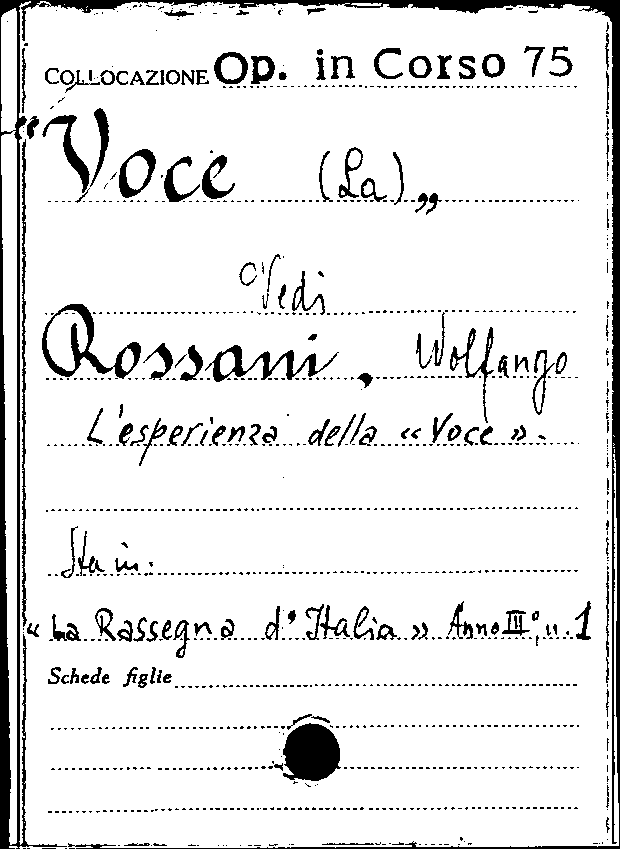 COLLOCAZIONE Op. in Corso 75
"Voce (La)„
Vedi
Rossani, Wolfango
L'esperienza della «Voce».
Sta in:
«La Rassegna d'Italia» Anno III°, n. 1
Schede figlie